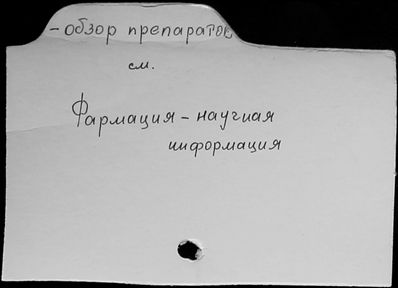 - обзор препаратов
см.
Фармация - научная
информация